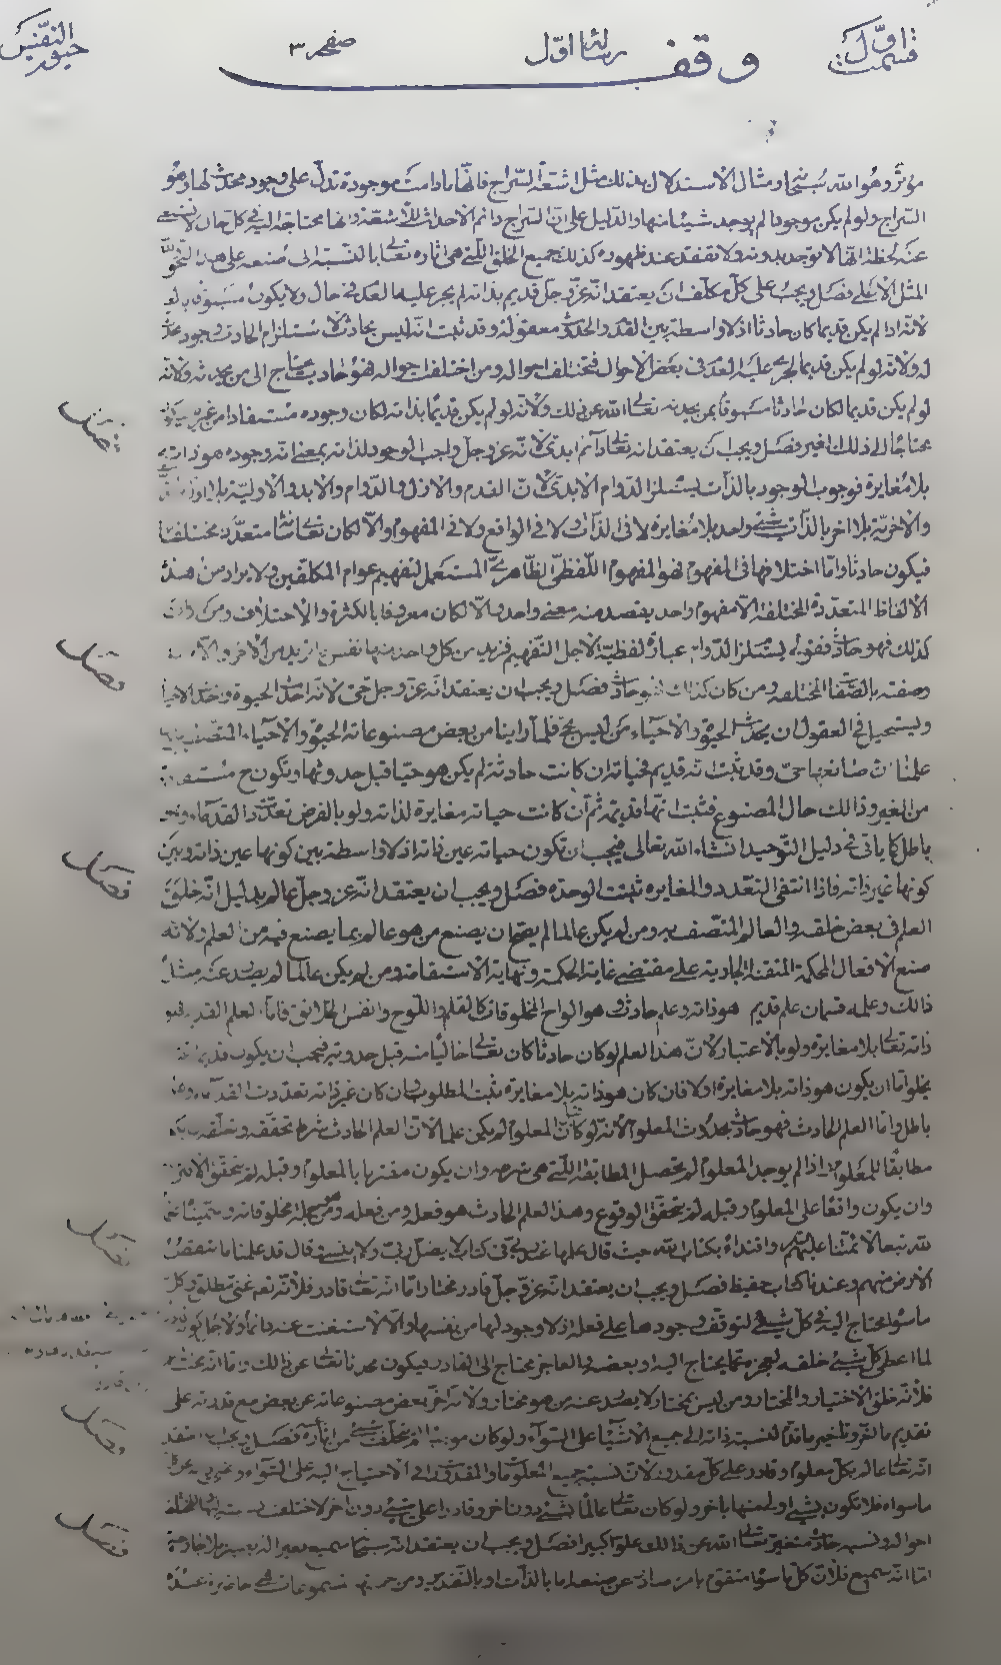 قسمت اوّل
وقف
رساله اوّل
صفحه ٣
مؤثر وهو الله سبحانه ومثال الاستدلال بذلك مثل اشعّة السّراج فانّها مادامت موجودة تدلّ على وجود محدث لها وهو
السّراج ولو لم يكن موجودا لم يوجد شيئا منها والدّليل على انّ السّراج دائم الاحداث للاشعّة وانّها محتاجة اليه في كل حال لا
عنه لحظة انّها لا توجد بدونه ولا تفقد عند ظهوره كذلك جميع الخلق الّتي هي آثاره تعالى بالنّسبة الى صنعه على هذا النّحو ولله
المثل الاعلى فصل ويجب على كلّ مكلّف ان يعتقد انّه عزّ وجلّ قديم بذاته لم يجر عليه العدم في حال ولا يكون مسبوقا بالغير
لانّه اذا لم يكن قديما كان حادثا اذ لا واسطة بين القدم والحدث معقولة وقد ثبت انّه ليس بحادث لاستلزام الحادث وجود محدث
له ولانّه لو لم يكن قديما لجرى عليه العدم في بعض الاحوال فتختلف احواله ومن اختلفت احواله فهو حادث محتاج الى من يحدثه ولانّه
لو لم يكن قديما لكان حادثا مسبوقا بمن يحدثه تعالى الله عن ذلك ولانّه لو لم يكن قديما بذاته لكان وجوده مستفادا من غيره فيكون
محتاجا الى ذلك الغير فصل ويجب ان يعتقد انه تعالى دائم ابديّ لانّه عزّ وجلّ واجب الوجود لذاته بمعنى انّه وجوده هو ذاته
بلا مغايرة فوجوب الوجود بالذّات يستلزم الدّوام الابديّ لانّ القدم والازل والدّوام والابد والاوليّة بلا اوّل
والاخريّة بلا اخر بالذّات شيء واحد بلا مغايرة لا في الذّات ولا في الواقع ولا في المفهوم والّا لكان تعالى متعدّدا مختلفا
فيكون حادثا وامّا اختلافها في المفهوم فهو المفهوم اللّفظيّ الظّاهريّ المستعمل لتفهيم عوام المكلّفين ولا يراد من هذه
الالفاظ المتعدّدة المختلفة الّا مفهوم واحد يقصد منه معنى واحد والّا لكان معروفا بالكثرة والاختلاف ومن كان
كذلك فهو حادث فقوله يستلزم الدّوام عبارة لفظيّة لاجل التّفهيم فنريد من كل واحد منها نفس ما نريد من الاخر والّا
وصفته بالصّفات المختلفة ومن كان كذلك فهو حادث فصل ويجب ان يعتقد انّه عزّ وجل حيّ لانّه احدث الحيوة وخلق الاحياء
ويستحيل في العقول ان يحدث الحيوة والاحياء من ليس بحيّ فلمّا راينا من بعض مصنوعاته الحيوة والاحياء المتّصف بها
علمنا انّ صانعها حيّ وقد ثبت انّه قديم فحياته ان كانت حادثة لم يكن هو حيّا قبل حدوثها وتكون ح مستفادة
من الغير وذلك حال المصنوع فثبت انّها قديمة ثم ان كانت حياته مغايرة لذاته ولو بالفرض تعدّدت القدماء وهو
باطل كما ياتي في دليل التّوحيد انشاء الله تعالى فيجب ان تكون حياته عين ذاته اذ لا واسطة بين كونها عين ذاته وبين
كونها غير ذاته فاذا انتفى التعدد والمغايرة ثبتت الوحدة فصل ويجب ان يعتقد انّه عز وجلّ عالم بدليل انّه خلق
العلم في بعض خلقه والعالم المتّصف به ومن لم يكن عالما لم يصحّ ان يصنع من هو عالم بما يصنع فيه من العلم ولانّه
صنع الافعال المحكمة المتقنة الجارية على مقتضى غاية الحكمة ونهاية الاستقامة ومن لم يكن عالما لم يصدر عنه مثل
ذلك وعلمه قسمان علم قديم هو ذاته وعلم حادث وهو الواح المخلوقات كالقلم واللّوح وانفس الخلائق فامّا العلم القديم فهو
ذاته تعالى بلا مغايرة ولو بالاعتبار لانّ هذا العلم لو كان حادثا كان تعالى خاليا منه قبل حدوثه فيجب ان يكون قديما
يخلو امّا ان يكون هو ذاته بلا مغايرة او لا فان كان هو ذاته بلا مغايرة ثبت المطلوب وان كان غير ذاته تعدّدت القدماء وهو
باطل وامّا العلم الحادث فهو حادث بحدوث المعلوم لانّه لو كان قبل المعلوم لم يكن علما لانّ العلم الحادث شرط تحققه وتعلّقه ان يكون
مطابقا للمعلوم اذ لم يوجد المعلوم لم تحصل المطابقة الّتي هي شرطه وان يكون مقترنا بالمعلوم وقبله لم يتحقّق الاقتران
وان يكون واقعا على المعلوم وقبله لم يتحقق الوقوع وهذا العلم الحادث هو فعله ومن فعله وهو من جملة مخلوقاته وسمّيناه علما
لله تبعا لائمّتنا عليهم السلام واقتداء بكتاب الله حيث قال علمها عند ربّي في كتاب لا يضلّ ربّي ولا ينسى وقال قد علمنا ما تنقص
الارض منهم وعندنا كتاب حفيظ فصل ويجب ان يعتقد انّه عزّ وجلّ قادر مختار امّا انّه تعالى قادر فلانّه تعالى غنيّ مطلق وكلّ
ما سواه محتاج اليه في كلّ شيء لتوقّف وجودها على فعله اذ لا وجود لها من نفسها والّا لاستغنت عنه دائما ولا
لما اعطى كلّ شيء خلقه لعجزه عمّا يحتاج اليه او بعضه والعاجز محتاج الى القادر فيكون محدثا تعالى عن ذلك وامّا انّه مختار
فلانّه خلق الاختيار والمختار ومن ليس بمختار لا يصدر عنه من هو مختار ولانّه اخّر بعض مصنوعاته عن بعض مع قدرته على
تقديم ما اخّر وتاخير ما قدّم لنسبة ذاته الى جميع الاشياء على السّواء ولو كان موجبا لم يتخلّف شيء من آثاره فصل ويجب ان يعتقد
انّه تعالى عالم بكلّ معلوم وقادر على كلّ مقدور لانّ نسبة جميع المعلومات والمقدورات في الاحتياج اليه على السّواء وغني عن كلّ
ما سواه فلا تكون بشيء اولى منها باخر ولو كان تعالى عالما بشيء دون اخر وقادرا على شيء دون اخر لاختلفت نسبته
احواله ونسبه حادث متغيّر تعالى الله عن ذلك علوّا كبيرا فصل ويجب ان يعتقد انّه سبحانه سميع بغير آلة بصير بلا جارحة
امّا انّه سميع فلانّ كلّ ما سواه متقوّم بامره صادر عن صنعه اما بالذّات او بالتّقدير ومن جملتهم مسموعات فهي حاضرة عنده
فصل
فصل
فصل
فصل
فصل
فصل